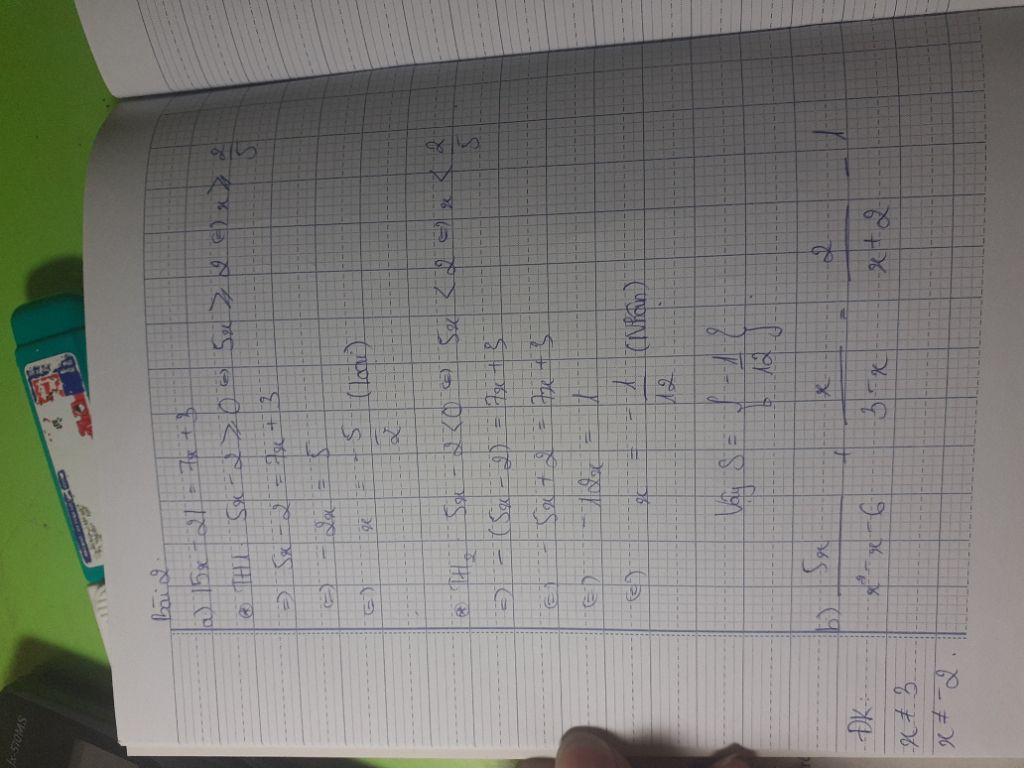 Bài 2
a) |5x - 2| = 7x + 3
⊛ TH1: 5x - 2 ⩾ 0 ⇔ 5x ⩾ 2 ⇔ x ⩾ 2/5
⇒ 5x - 2 = 7x + 3
⇔ - 2x = 5
⇔ x = - 5/2 (loại)
⊛ TH2: 5x - 2 < 0 ⇔ 5x < 2 ⇔ x < 2/5
⇒ - (5x - 2) = 7x + 3
⇔ - 5x + 2 = 7x + 3
⇔ - 12x = 1
⇔ x = - 1/12 (Nhận)
Vậy S = { - 1/12 }
b) 5x/(x² - x - 6) + x/(3 - x) = 2/(x + 2) - 1
ĐK:
x ≠ 3
x ≠ -2.